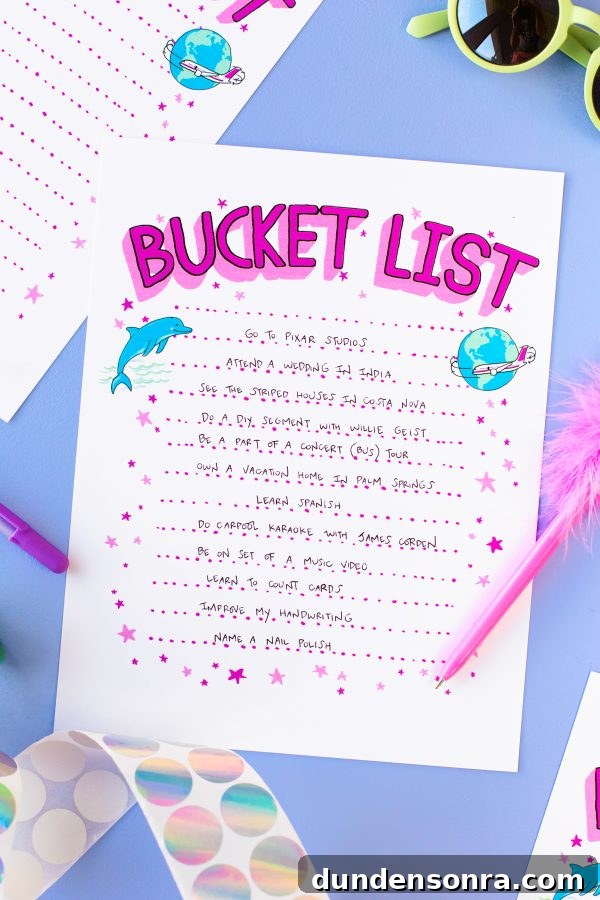 BUCKET LIST
GO TO PIXAR STUDIOS
ATTEND A WEDDING IN INDIA
SEE THE STRIPED HOUSES IN COSTA NOVA
DO A DIY SEGMENT WITH WILLIE GEIST
BE A PART OF A CONCERT (BUS) TOUR
OWN A VACATION HOME IN PALM SPRINGS
LEARN SPANISH
DO CARPOOL KARAOKE WITH JAMES CORDEN
BE ON SET OF A MUSIC VIDEO
LEARN TO COUNT CARDS
IMPROVE MY HANDWRITING
NAME A NAIL POLISH
dundensonra.com